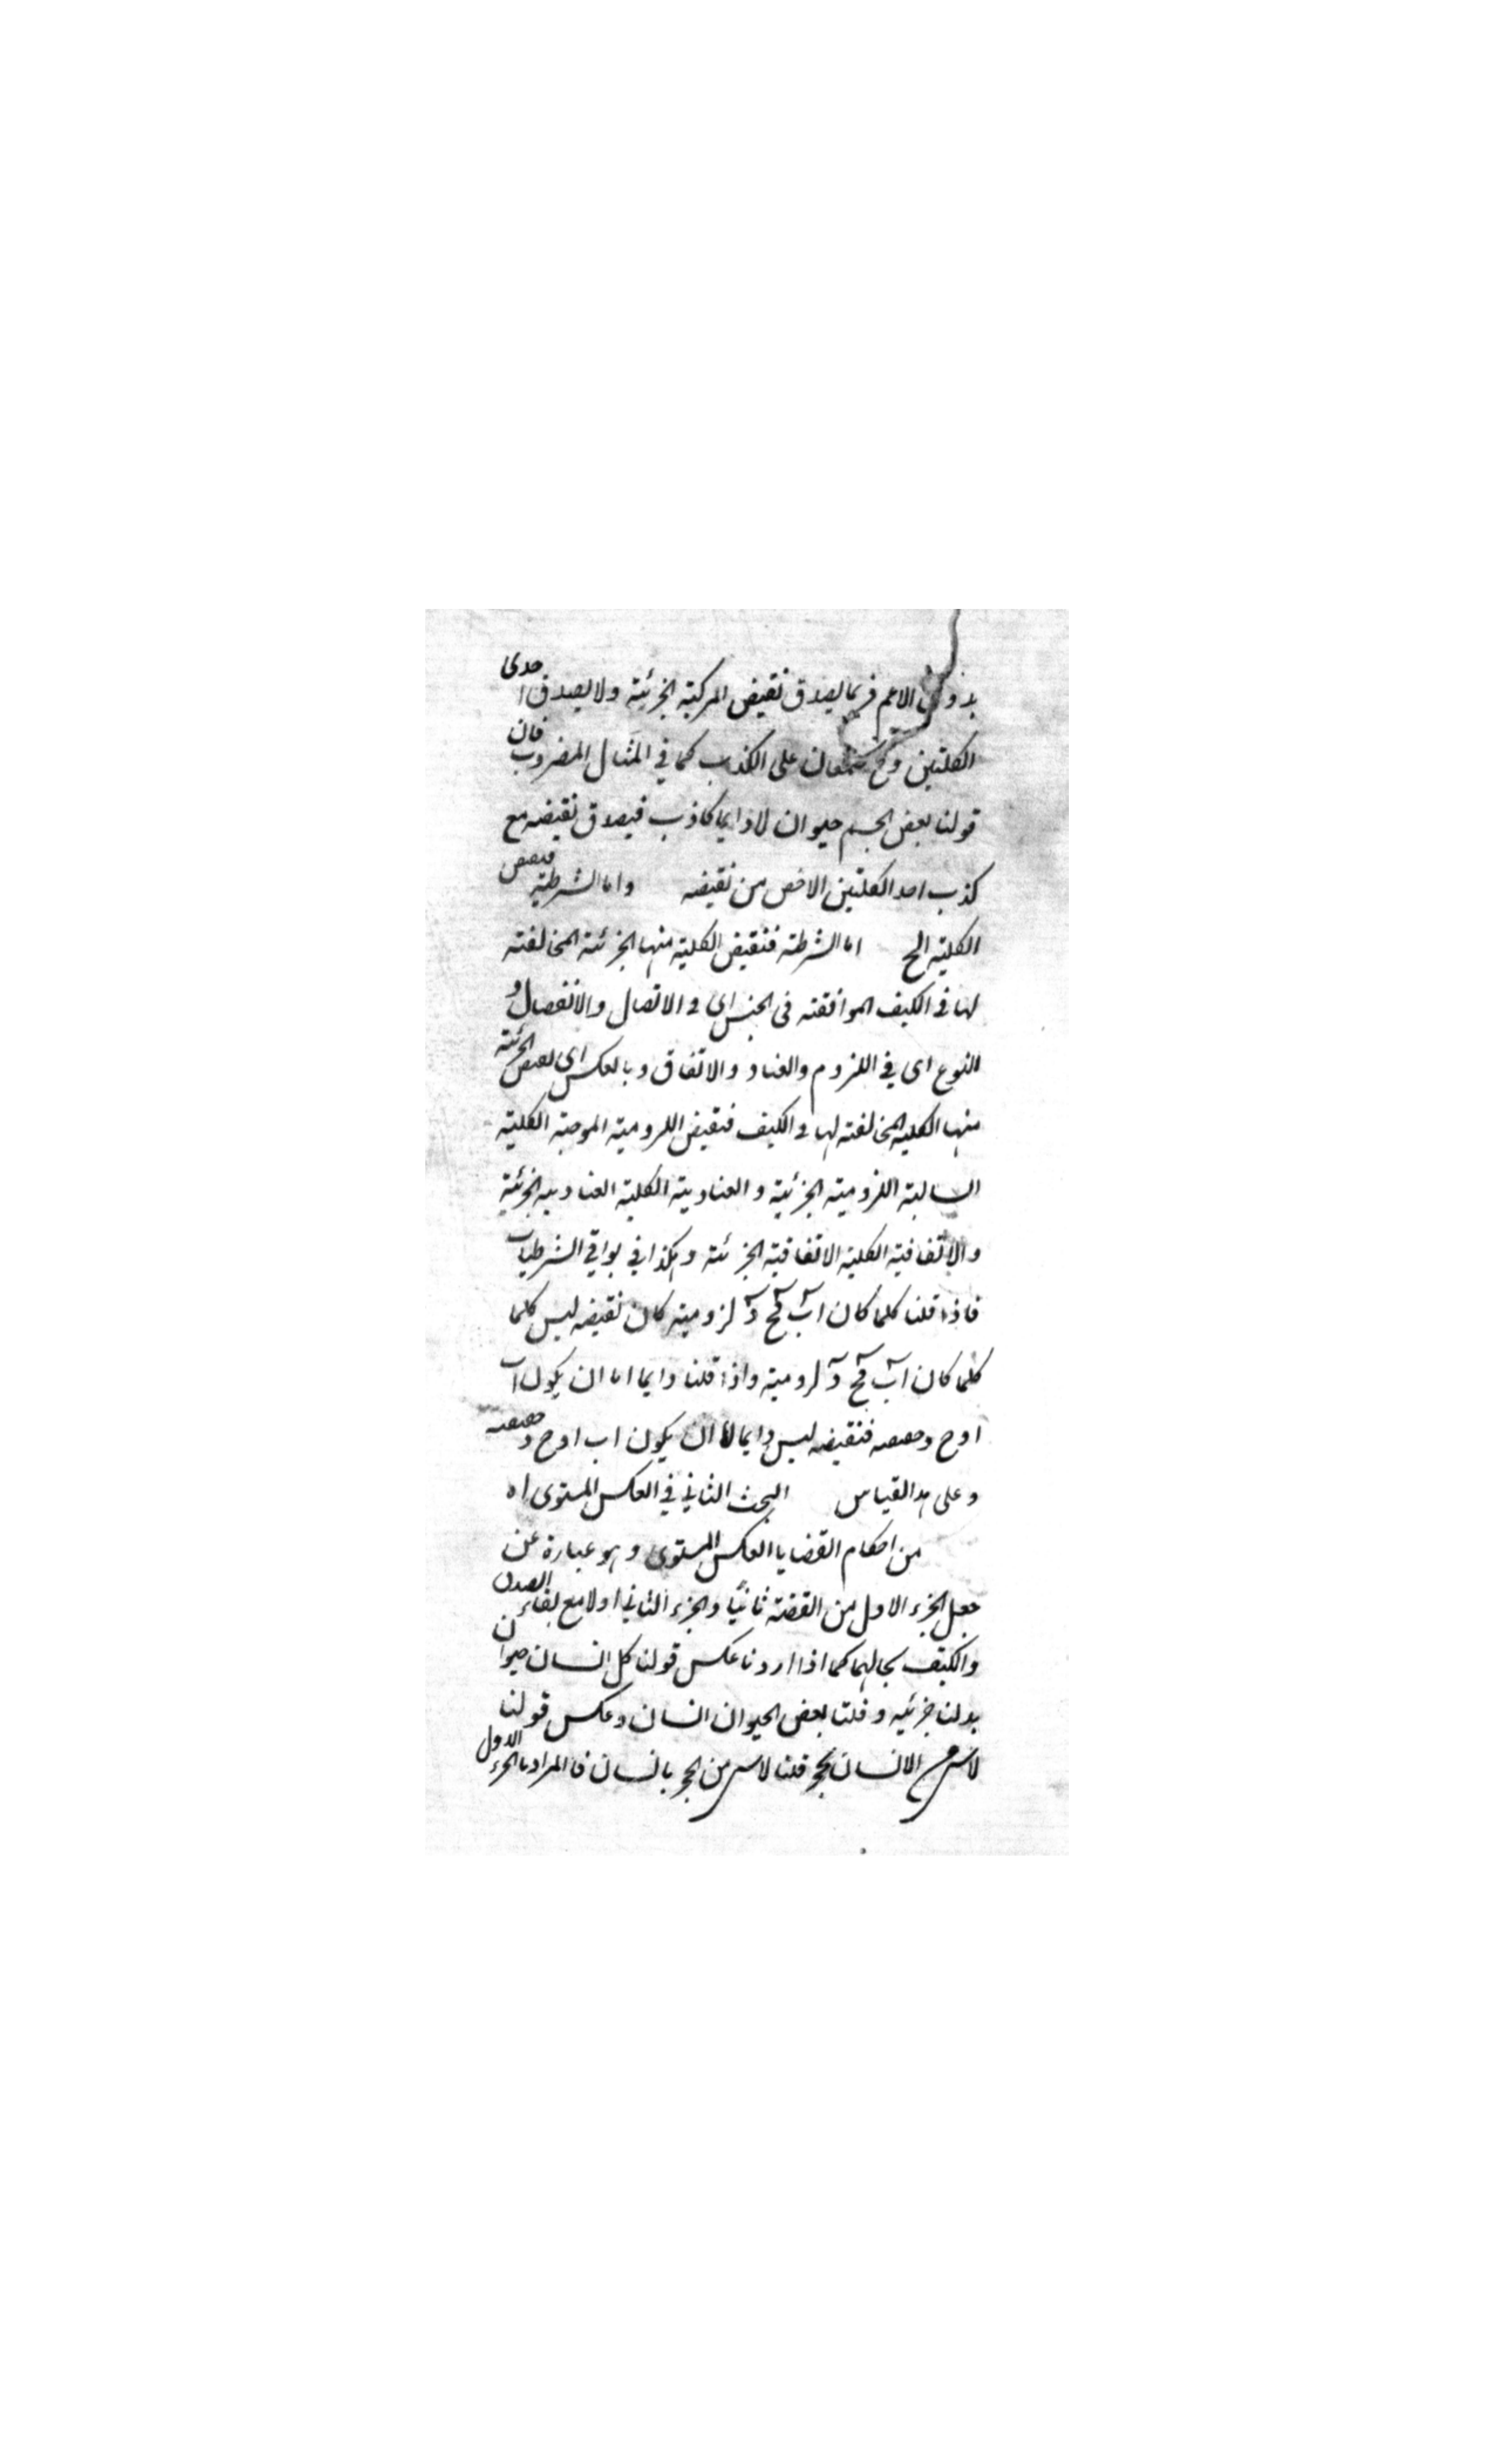 بدون الاعم فربما يصدق نقيض المركبة الجزئية ولا يصدق احدى
الكليتين وح تجتمعان على الكذب كما في المثال المضروب فان
قولنا بعض الجسم حيوان لادايما كاذب فيصدق نقيضه مع
كذب احد الكليتين الاخص من نقيضه واما الشرطية فنقيض
الكلية الخ اما الشرطية فنقيض الكلية منها الجزئية المخالفة
لها في الكيف الموافقة في الجنس اى في الاتصال والانفصال و
النوع اى في اللزوم والعناد والاتفاق وبالعكس اى نقيض الجزئية
منها الكلية المخالفة لها في الكيف فنقيض اللزومية الموجبة الكلية
السالبة اللزومية الجزئية والعنادية الكلية العنادية الجزئية
والاتفاقية الكلية الاتفاقية الجزئية وهكذا في بواقي الشرطيات
فاذا قلنا كلما كان اب فج د لزومية كان نقيضه ليس كلما
كلما كان اب فج د لزومية واذا قلنا دايما اما ان يكون اب
او ج د حقيقية فنقيضه ليس دايما اما ان يكون اب او ج د حقيقية
وعلى هذا القياس البحث الثاني في العكس المستوى اه
من احكام القضايا العكس المستوى وهو عبارة عن
جعل الجزء الاول من القضية ثانيا والجزء الثاني اولا مع بقاء الصدق
والكيف بحالهما كما اذا اردنا عكس قولنا كل انسان حيوان
بدلنا جزئيه وقلنا بعض الحيوان انسان وعكس قولنا
لاشئ من الانسان بحجر قلنا لاشئ من الحجر بانسان فالمراد بالجزء الاول